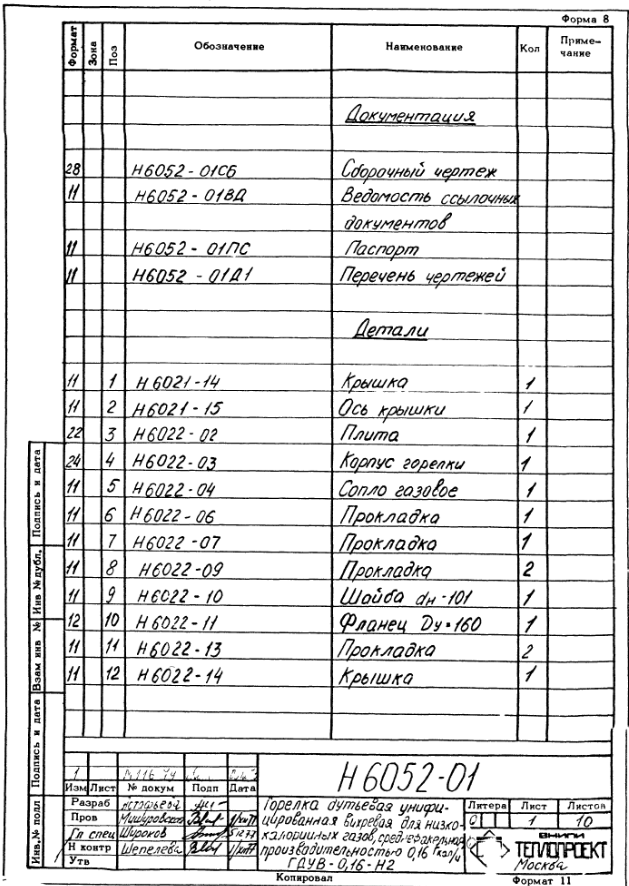 Форма 8
Формат Зона Поз Обозначение Наименование Кол Приме-
чание
Документация
28 Н6052-01СБ Сборочный чертеж
11 Н6052-01ВД Ведомость ссылочных
документов
11 Н6052-01ПС Паспорт
11 Н6052-01Д1 Перечень чертежей
Детали
11 1 Н6021-14 Крышка 1
11 2 Н6021-15 Ось крышки 1
22 3 Н6022-02 Плита 1
24 4 Н6022-03 Корпус горелки 1
11 5 Н6022-04 Сопло газовое 1
11 6 Н6022-06 Прокладка 1
11 7 Н6022-07 Прокладка 1
11 8 Н6022-09 Прокладка 2
11 9 Н6022-10 Шайба dн-101 1
12 10 Н6022-11 Фланец Dу=160 1
11 11 Н6022-13 Прокладка 2
11 12 Н6022-14 Крышка 1
Подпись и дата
Инв № дубл.
Взам инв №
Подпись и дата
Инв.№ подл
1
Изм Лист № докум Подп Дата
Н6052-01
Разраб
Пров
Гл спец Широков
Н контр Шепелева
Утв
Горелка дутьевая унифи-
цированная вихревая для низко-
калорийных газов, среднефакельная
производительностью 0,16 Гкал/ч
ГДУВ-0,16-Н2
Литера Лист Листов
1 10
ВНИПИ
ТЕПЛОПРОЕКТ
Москва
Копировал Формат 11